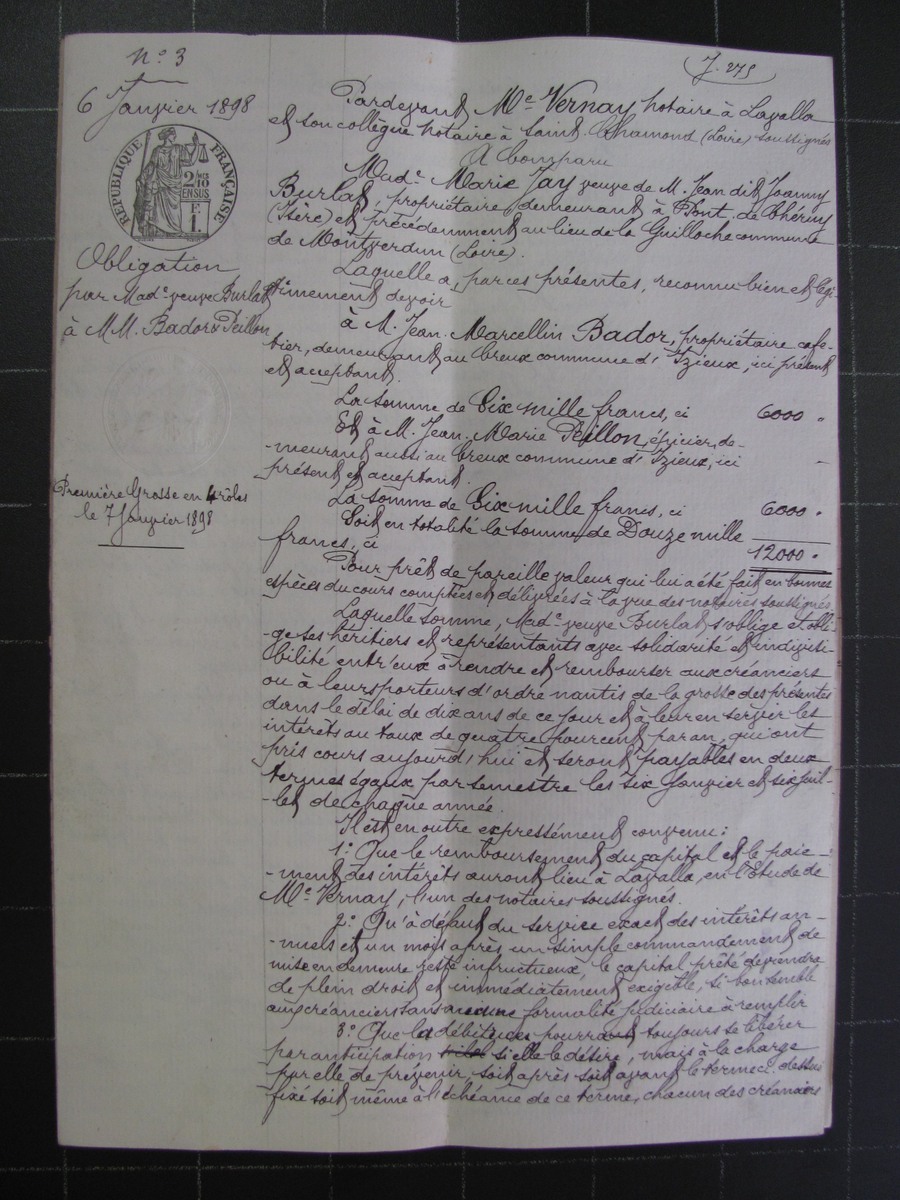 N° 3
J. 275
6 Janvier 1898
RÉPUBLIQUE FRANÇAISE
2/10 EN SUS
F.
1.
Obligation
par Made veuve Burlat
à MM. Bador & Peillon
Première Grosse en 4 rôles
le 7 Janvier 1898
Pardevant Me Vernay notaire à Lavalla
et son collègue notaire à Saint-Chamond (Loire) soussignés
A Comparu
Made Marie Jay veuve de M. Jean dit Joanny
Burlat, propriétaire, demeurant à Pont-de-Chéruy
(Isère) et précédemment au lieu de la Guilloche commune
de Montverdun (Loire).
Laquelle a, par ces présentes, reconnu bien et légi-
timement devoir
à M. Jean-Marcellin Bador, propriétaire cafe-
tier, demeurant au Creux commune d'Izieux, ici présent
et acceptant.
La somme de Six mille francs, ci 6000 "
Et à M. Jean-Marie Peillon, épicier, de-
-meurant aussi au Creux commune d'Izieux, ici
présent et acceptant.
La somme de Six mille francs, ci 6000 "
Soit en totalité la somme de Douze mille
francs, ci 12000 "
Pour prêt de pareille valeur qui lui a été fait en bonnes
espèces du cours comptées et délivrées à la vue des notaires soussignés
Laquelle somme, Made veuve Burlat s'oblige et obli-
-ge ses héritiers et représentants avec solidarité et indivisi-
bilité entr'eux à rendre et rembourser aux créanciers
ou à leurs porteurs d'ordre nantis de la grosse des présentes
dans le délai de dix ans de ce jour et à leur en servir les
intérêts au taux de quatre pour cent par an, qui ont
pris cours aujourd'hui et seront payables en deux
termes égaux par semestre les six Janvier et six juil-
-let de chaque année.
Il est en outre expressément convenu:
1° Que le remboursement du capital et le paie-
-ment des intérêts auront lieu à Lavalla, en l'Etude de
Me Vernay, l'un des notaires soussignés.
2° Qu'à défaut du service exact des intérêts an-
-nuels et un mois après un simple commandement de
mise en demeure resté infructueux, le capital prêté deviendra
de plein droit et immédiatement exigible, si bon semble
aux créanciers sans aucune formalité judiciaire à remplir
3° Que la débitrice pourra toujours se libérer
par anticipation si elle le désire, mais à la charge
par elle de prévenir soit après soit avant le terme ci-dessus
fixé soit même à l'échéance de ce terme, chacun des créanciers